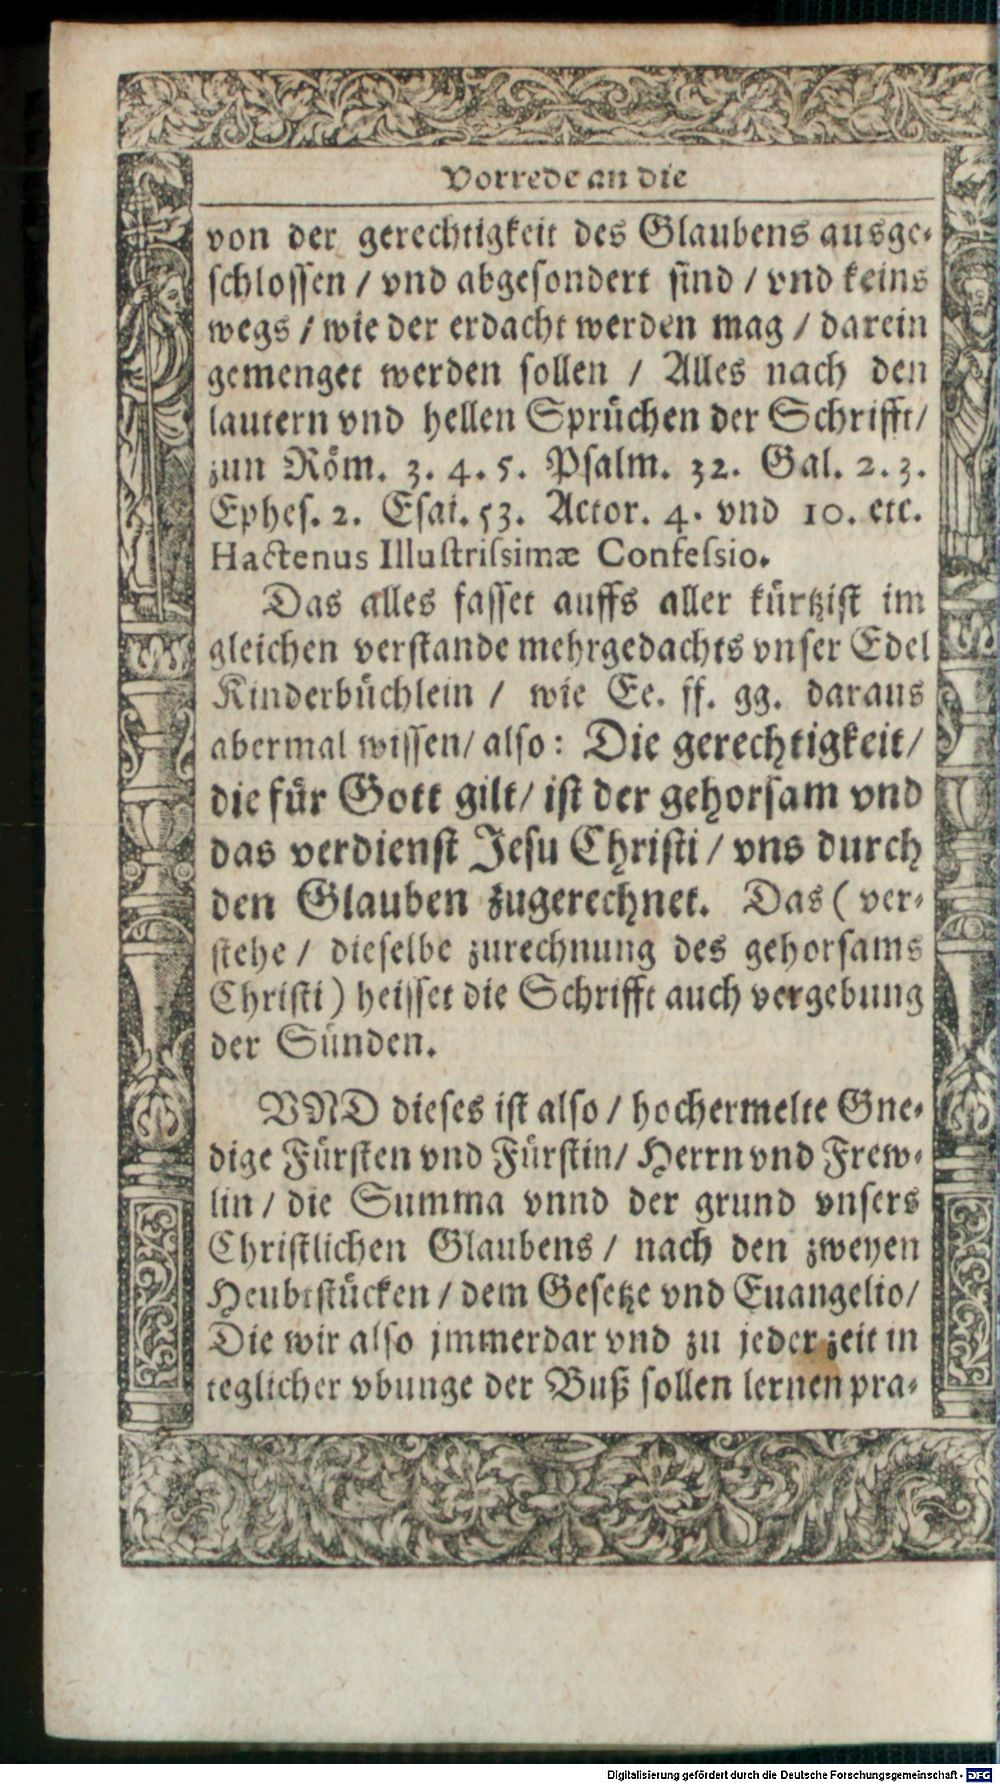 Vorrede an die
von der gerechtigkeit des Glaubens ausge-
schlossen / vnd abgesondert sind / vnd keins
wegs / wie der erdacht werden mag / darein
gemenget werden sollen / Alles nach den
lautern vnd hellen Sprüchen der Schrifft/
zun Röm. 3. 4. 5. Psalm. 32. Gal. 2. 3.
Ephes. 2. Esai. 53. Actor. 4. vnd 10. etc.
Hactenus Illustrissimæ Confessio.
Das alles fasset auffs aller kürtzist im
gleichen verstande mehrgedachts vnser Edel
Kinderbüchlein / wie Ee. ff. gg. daraus
abermal wissen/ also: Die gerechtigkeit/
die für Gott gilt/ ist der gehorsam vnd
das verdienst Jesu Christi / vns durch
den Glauben zugerechnet. Das ( ver-
stehe / dieselbe zurechnung des gehorsams
Christi ) heisset die Schrifft auch vergebung
der Sünden.
VND dieses ist also / hochermelte Gne-
dige Fürsten vnd Fürstin/ Herrn vnd Frew-
lin / die Summa vnnd der grund vnsers
Christlichen Glaubens / nach den zweyen
Heubtstücken / dem Gesetze vnd Euangelio/
Die wir also jmmerdar vnd zu jeder zeit in
teglicher vbunge der Buß sollen lernen pra-
Digitalisierung gefördert durch die Deutsche Forschungsgemeinschaft - DFG